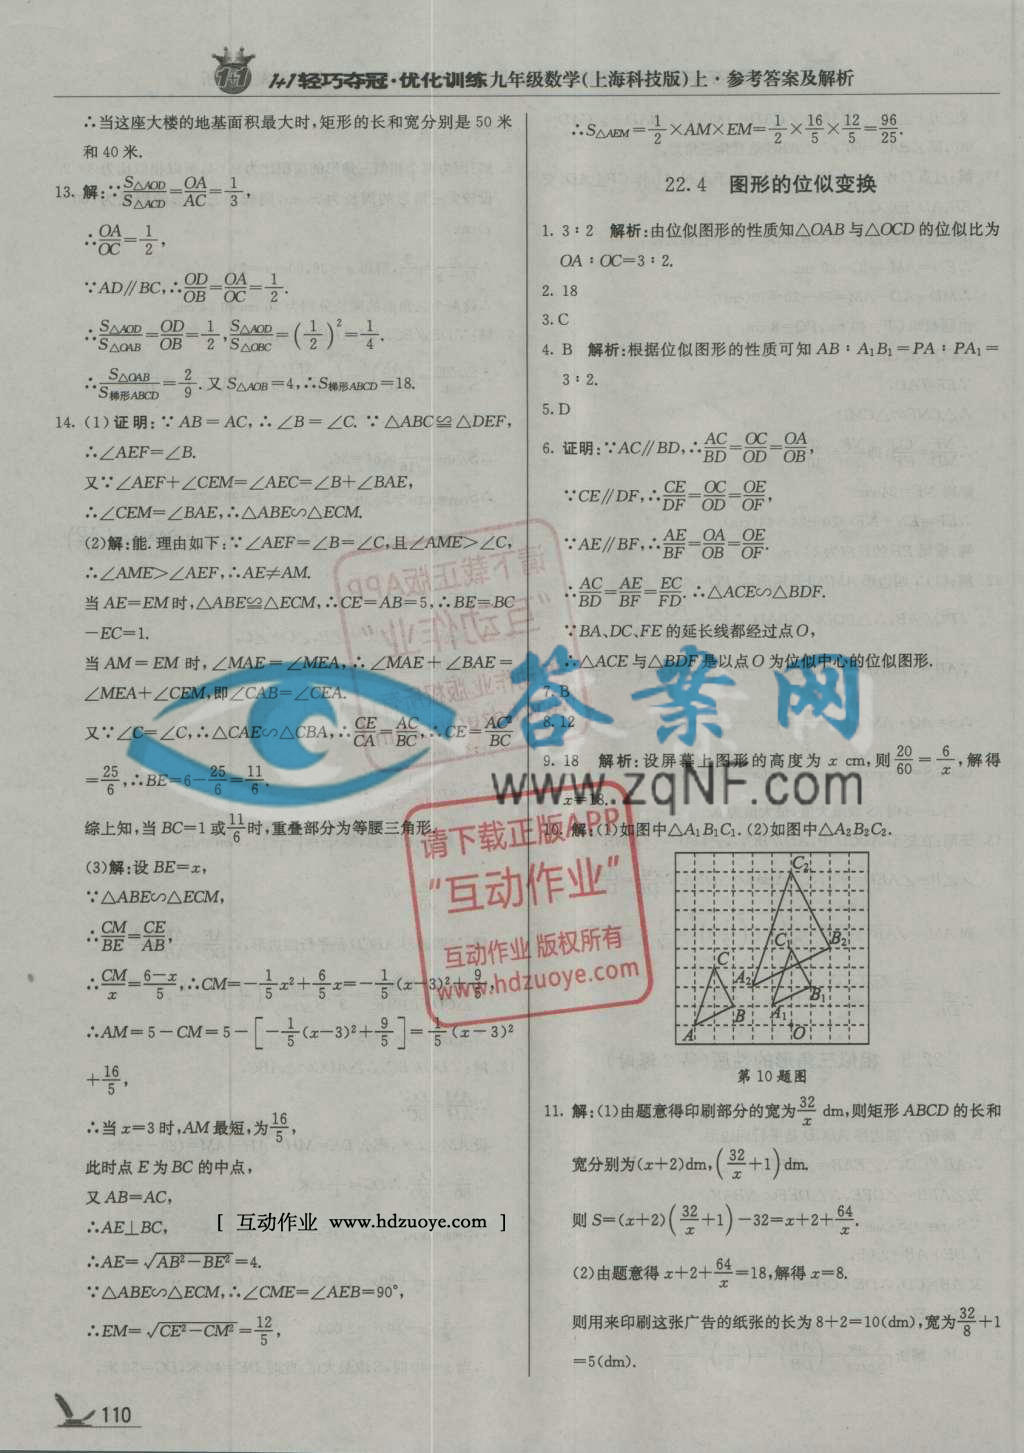 1+1轻巧夺冠·优化训练九年级数学(上海科技版)上·参考答案及解析
∴当这座大楼的地基面积最大时,矩形的长和宽分别是 50 米
和 40 米.
13. 解:∵S△AOD/S△ACD=OA/AC=1/3,
∴OA/OC=1/2,
∵AD∥BC,∴OD/OB=OA/OC=1/2.
∴S△AOD/S△OAB=OD/OB=1/2,S△AOD/S△OBC=(1/2)²=1/4.
∴S△OAB/S梯形ABCD=2/9.又 S△AOB=4,∴S梯形ABCD=18.
14. (1)证明:∵AB=AC,∴∠B=∠C.∵△ABC≌△DEF,
∴∠AEF=∠B.
又∵∠AEF+∠CEM=∠AEC=∠B+∠BAE,
∴∠CEM=∠BAE,∴△ABE∽△ECM.
(2)解:能.理由如下:∵∠AEF=∠B=∠C,且∠AME>∠C,
∴∠AME>∠AEF,∴AE≠AM.
当 AE=EM 时,△ABE≌△ECM,∴CE=AB=5,∴BE=BC
-EC=1.
当 AM=EM 时,∠MAE=∠MEA,∴∠MAE+∠BAE=
∠MEA+∠CEM,即∠CAB=∠CEA.
又∵∠C=∠C,∴△CAE∽△CBA,∴CE/CA=AC/BC,∴CE=AC²/BC
=25/6,∴BE=6-25/6=11/6.
综上知,当 BC=1 或11/6时,重叠部分为等腰三角形.
(3)解:设 BE=x,
∵△ABE∽△ECM,
∴CM/BE=CE/AB,
∴CM/x=6-x/5,∴CM=-1/5x²+6/5x=-1/5(x-3)²+9/5,
∴AM=5-CM=5-[-1/5(x-3)²+9/5]=1/5(x-3)²
+16/5,
∴当 x=3 时,AM 最短,为16/5,
此时点 E 为 BC 的中点,
又 AB=AC,
∴AE⊥BC,
[ 互动作业 www.hdzuoye.com ]
∴AE=√AB²-BE²=4.
∵△ABE∽△ECM,∴∠CME=∠AEB=90°,
∴EM=√CE²-CM²=12/5,
∴S△AEM=1/2×AM×EM=1/2×16/5×12/5=96/25.
22.4 图形的位似变换
1. 3∶2 解析:由位似图形的性质知△OAB 与△OCD 的位似比为
OA∶OC=3∶2.
2. 18
3. C
4. B 解析:根据位似图形的性质可知 AB∶A₁B₁=PA∶PA₁=
3∶2.
5. D
6. 证明:∵AC∥BD,∴AC/BD=OC/OD=OA/OB,
∵CE∥DF,∴CE/DF=OC/OD=OE/OF,
∵AE∥BF,∴AE/BF=OA/OB=OE/OF.
∴AC/BD=AE/BF=EC/FD.∴△ACE∽△BDF.
∵BA、DC、FE 的延长线都经过点 O,
∴△ACE 与△BDF 是以点 O 为位似中心的位似图形.
7. B
8. 12
9. 18 解析:设屏幕上图形的高度为 x cm,则20/60=6/x,解得
x=18.
10. 解:(1)如图中△A₁B₁C₁.(2)如图中△A₂B₂C₂.
C₂
C₁ B₂
C A₂
B₁
B A₁
A O
第 10 题图
11. 解:(1)由题意得印刷部分的宽为32/x dm,则矩形 ABCD 的长和
宽分别为(x+2)dm,(32/x+1)dm.
则 S=(x+2)(32/x+1)-32=x+2+64/x.
(2)由题意得 x+2+64/x=18,解得 x=8.
则用来印刷这张广告的纸张的长为 8+2=10(dm),宽为32/8+1
=5(dm).
110
答案网
www.zqNF.com
请下载正版APP
“互动作业”
互动作业 版权所有
www.hdzuoye.com
请下载正版APP
“互动作业”